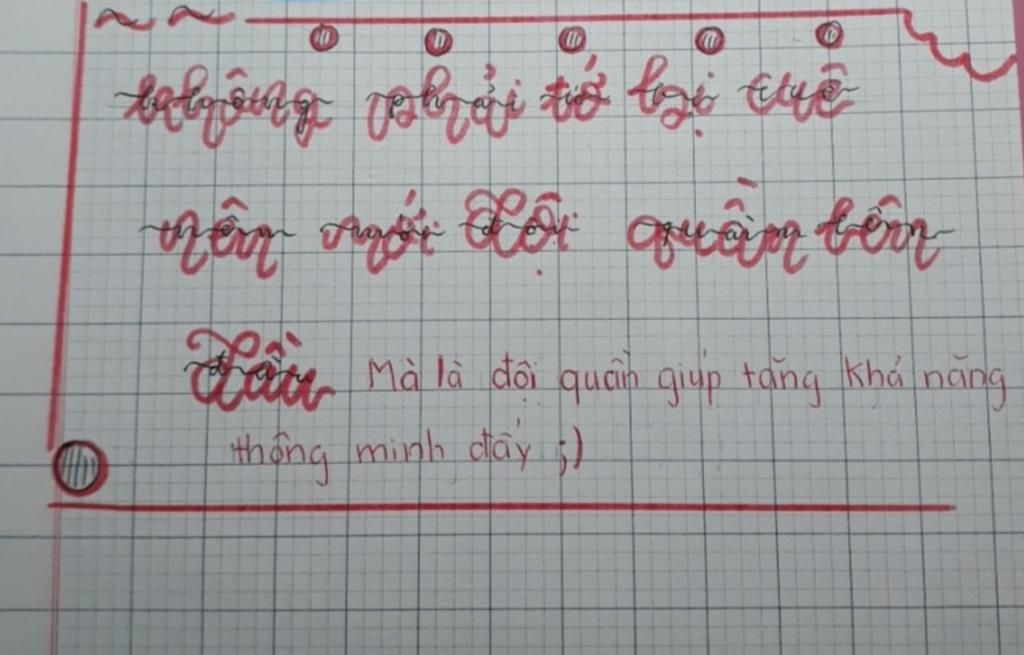 không phải tớ bị tuê
nên mới đội quần lên
đầu Mà là đội quần giúp tăng khả năng
thông minh đấy ;)